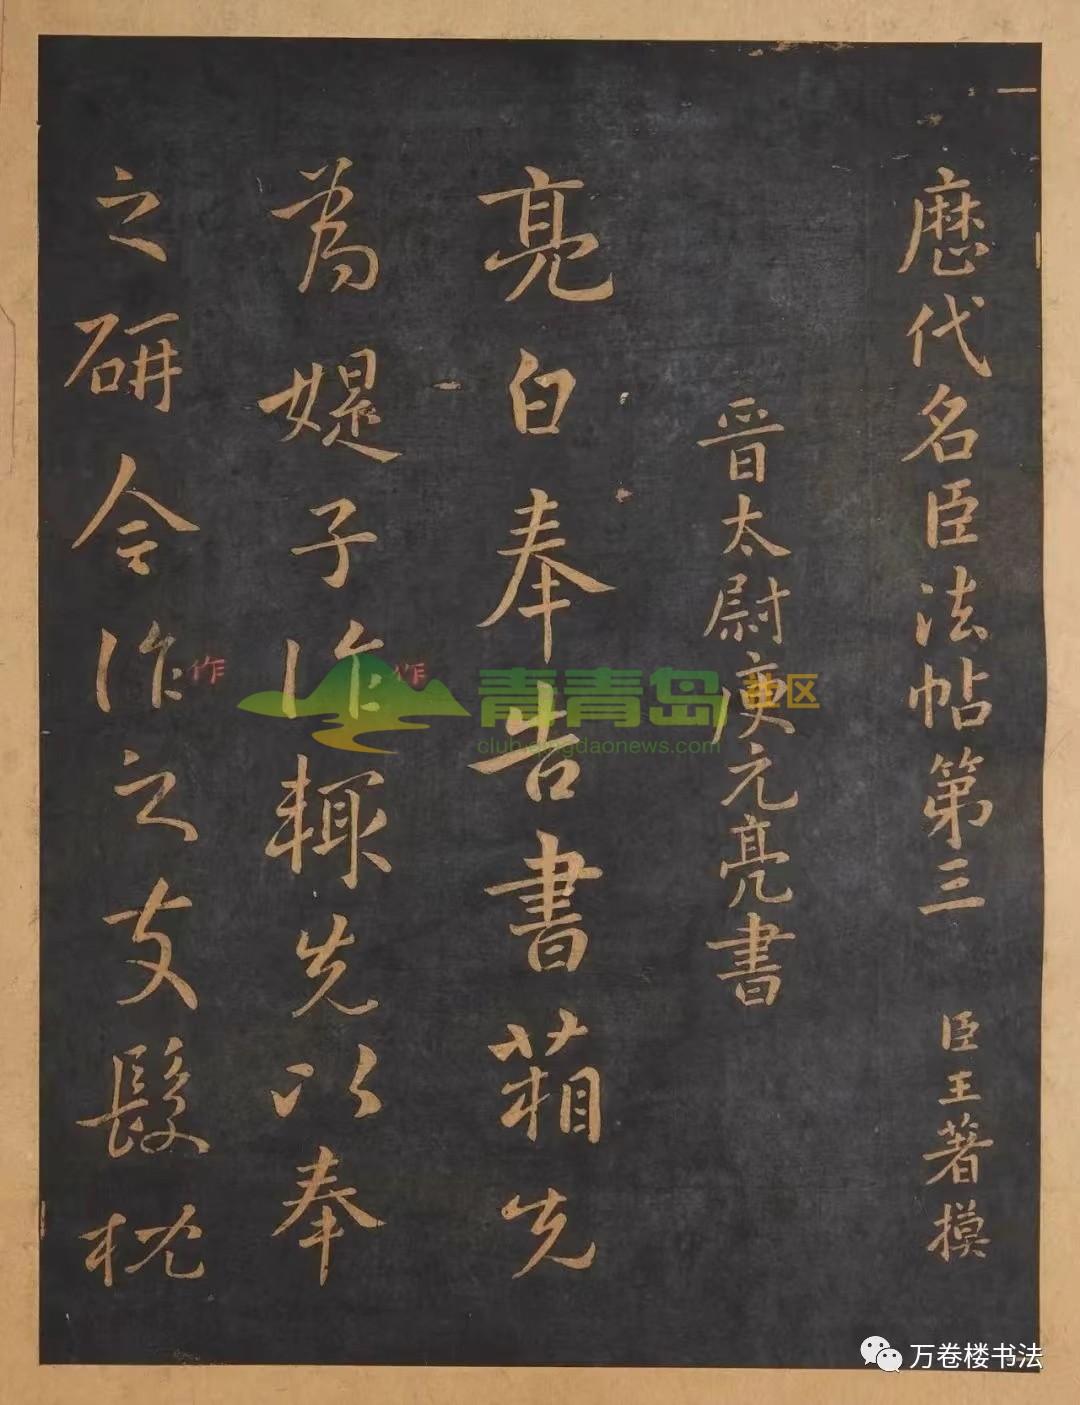 歷代名臣法帖第三 臣王著摸
晉太尉庾元亮書
亮白奉告書箱先
為媞子作輒先以奉
之研令作之支髮枕
作
作
青青岛社区
club.qingdaonews.com
万卷楼书法